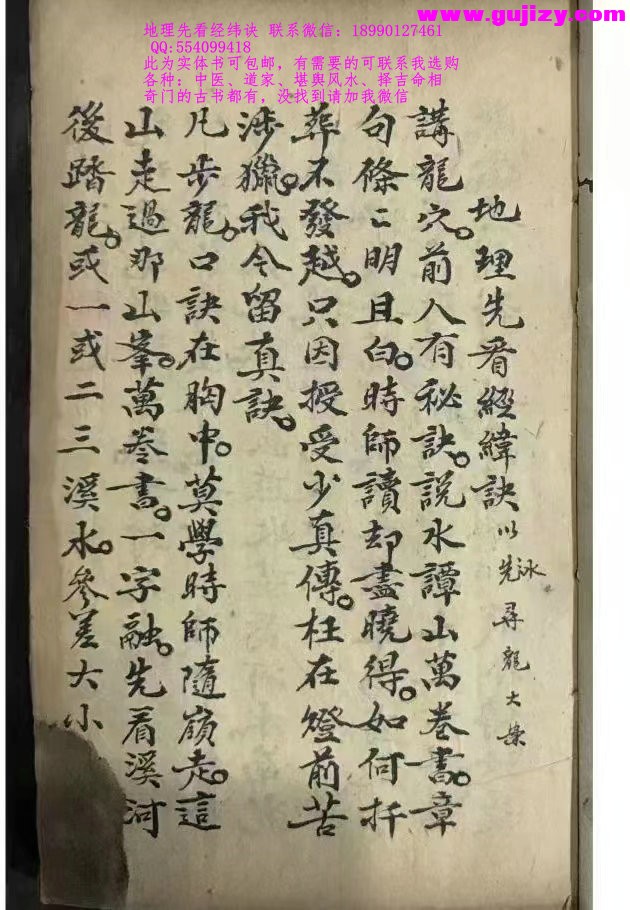 www.gujizy.com
地理先看经纬诀 联系微信：18990127461
QQ:554099418
此为实体书可包邮，有需要的可联系我选购
各种：中医、道家、堪舆风水、择吉命相
奇门的古书都有，没找到请加我微信
地理先看經緯訣 以先詠尋龍大
講龍穴。前人有秘訣。說水譚山萬卷書。章
句條〻明且白。時師讀却盡曉得。如何扦
葬不發越。只因授受少真傳。枉在燈前苦
涉獵。我今留真訣。
凡步龍。口訣在胸中。莫學時師隨嶺走。這
山走過那山峯。萬卷書。一字融。先看溪河
後踏龍。或一或二三溪水。參差大小